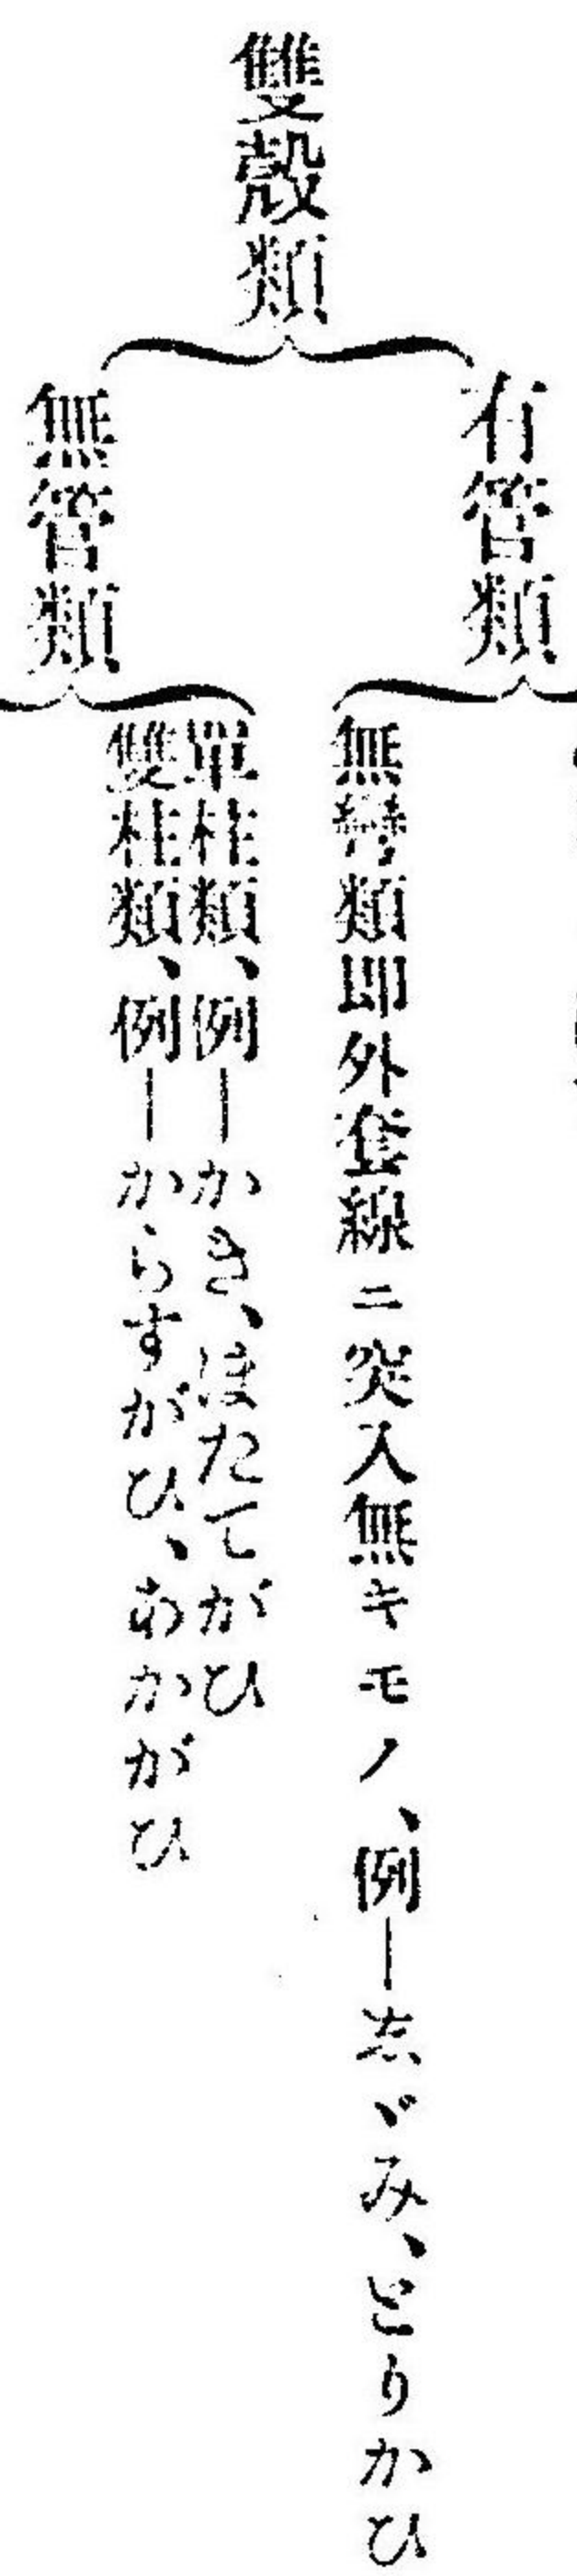 雙殼類
有管類
無彎類即外套線ニ突入無キモノ、例―志ゞみ、とりかひ
無管類
單柱類、例―かき、ほたてがひ
雙柱類、例―からすがひ、あかがひ